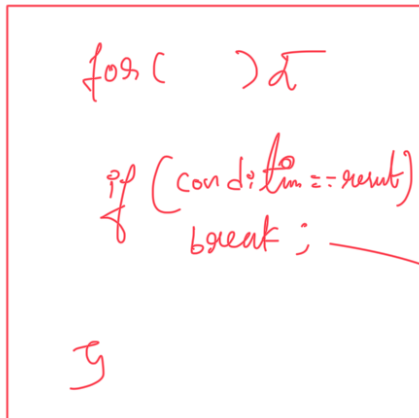 for(      ){
if (condition == result)
break ;
}